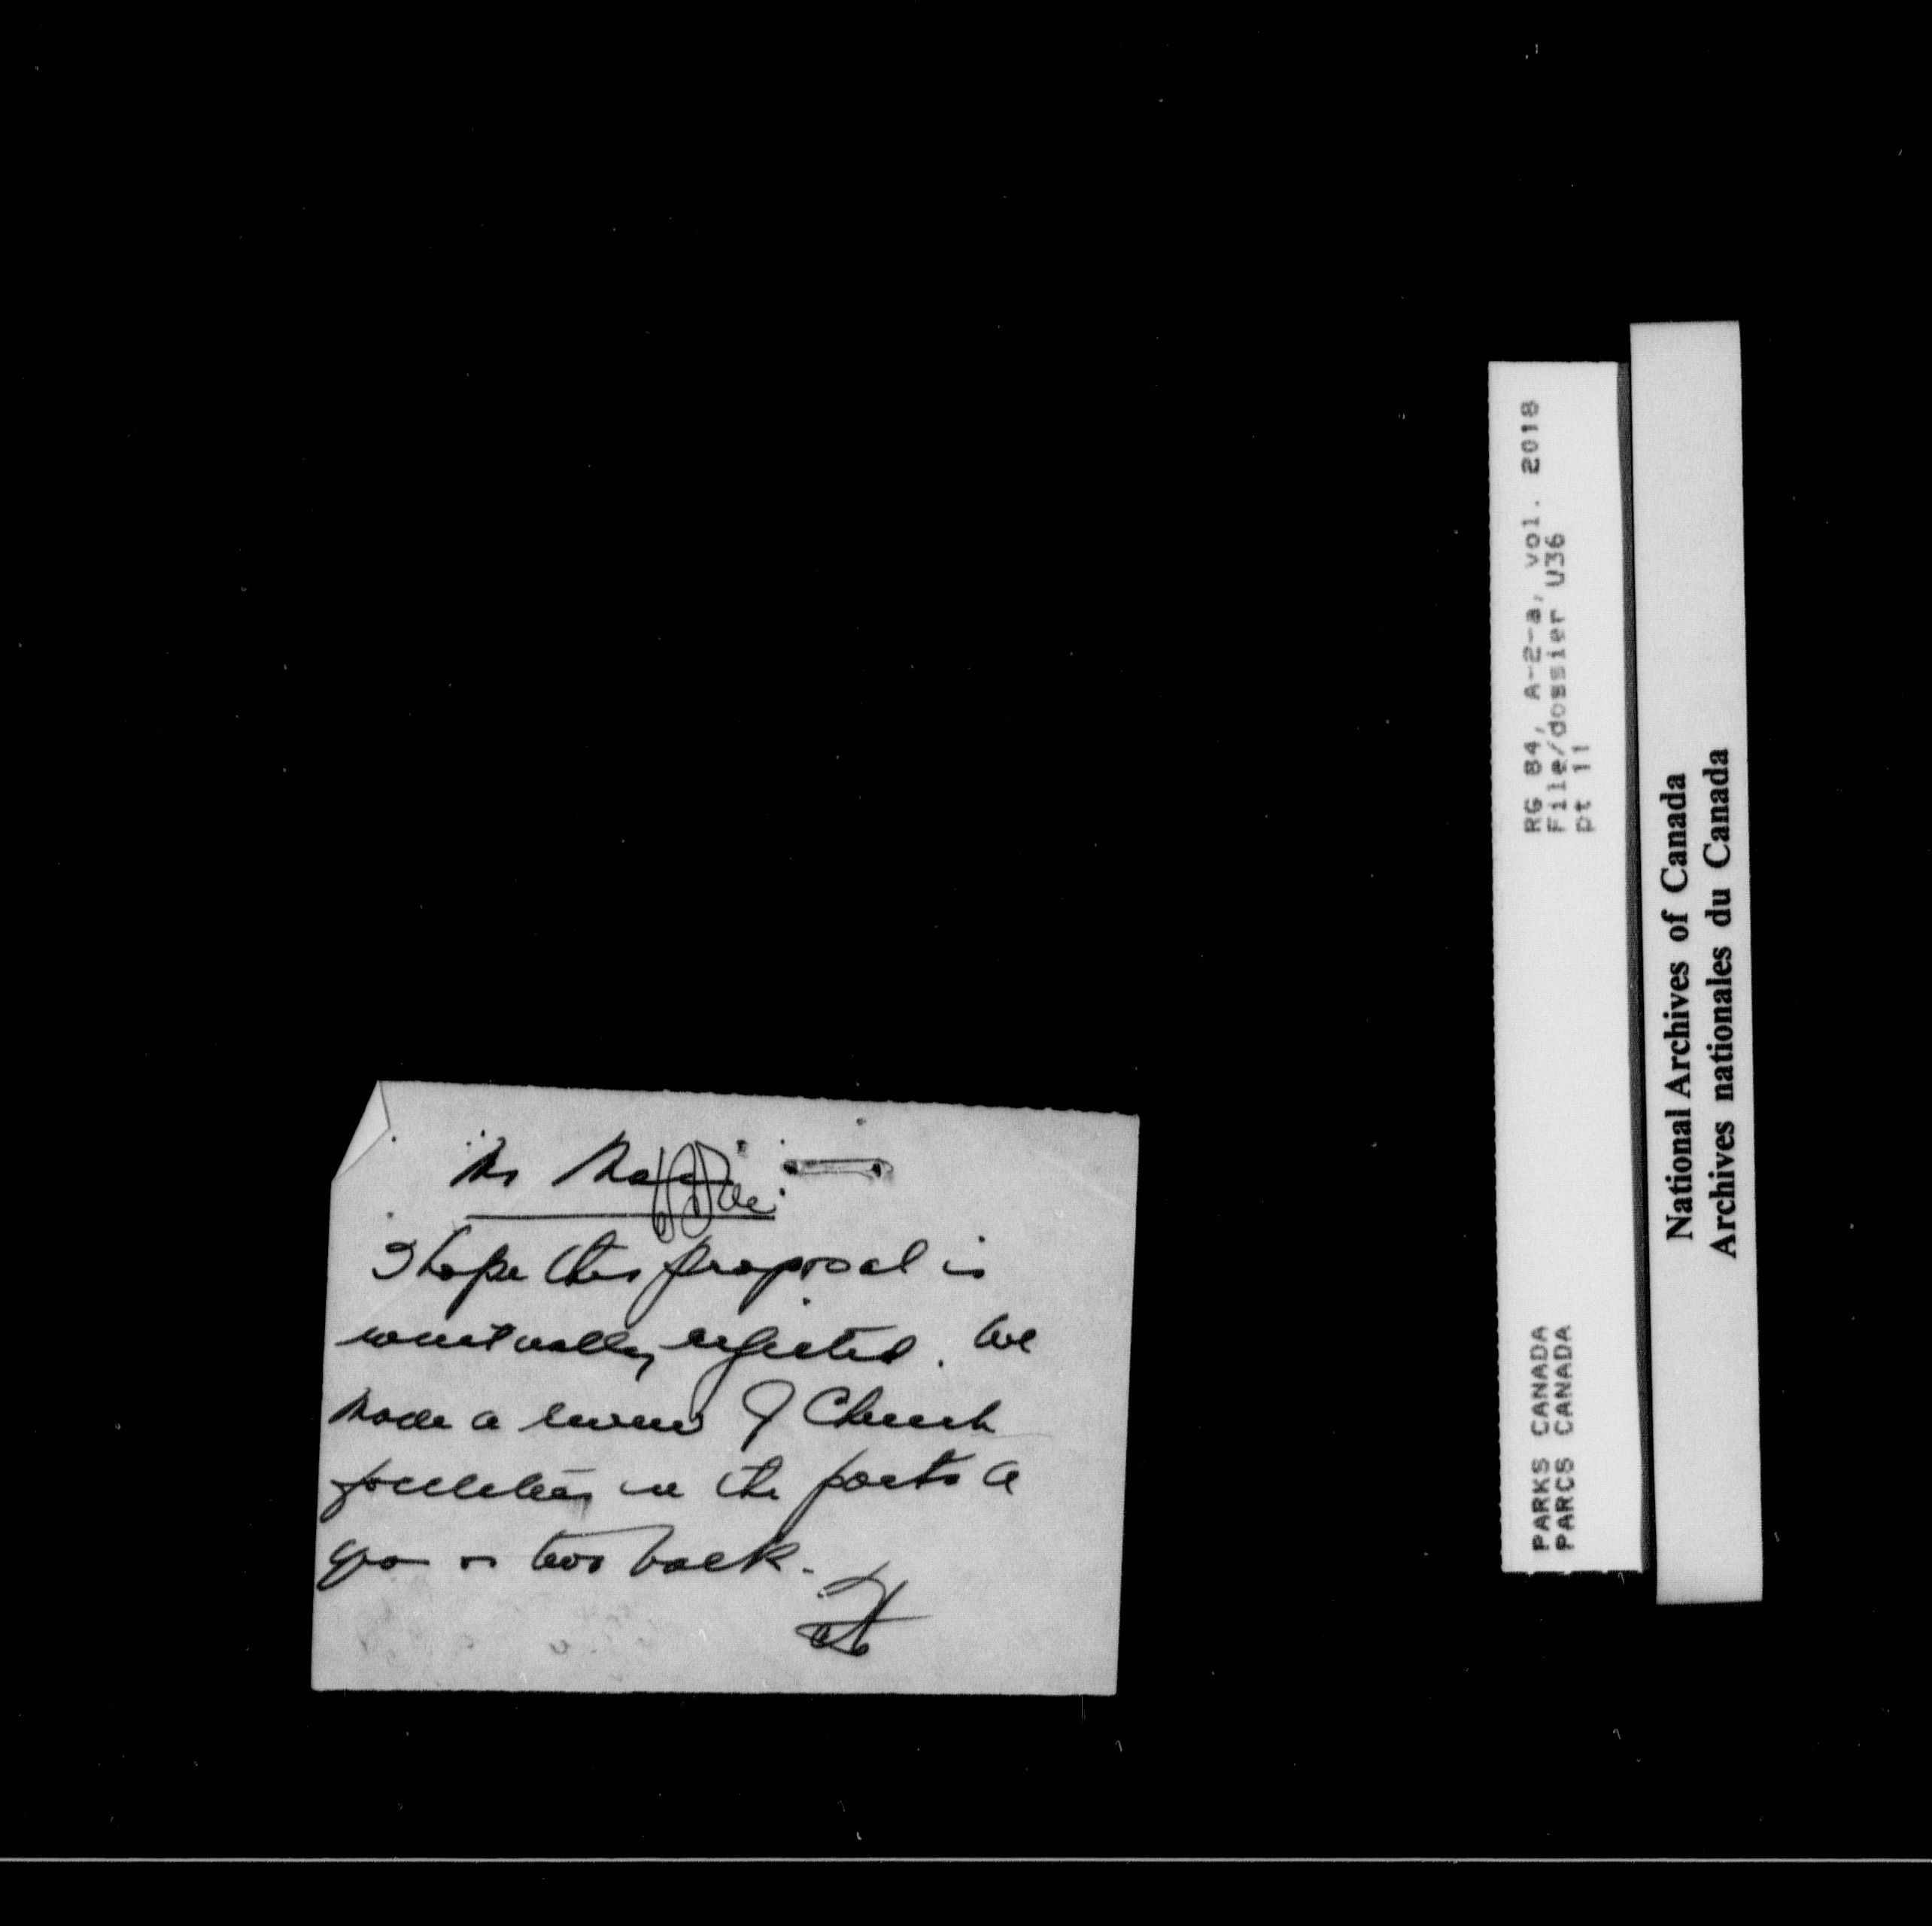 Mr
I hope this proposal is
eventually rejected. We
made a review of Church
facilities in the parks a
year or two back.
RG 84, A-2-a, vol. 2018
File/dossier U36
pt 11
PARKS CANADA
PARCS CANADA
National Archives of Canada
Archives nationales du Canada